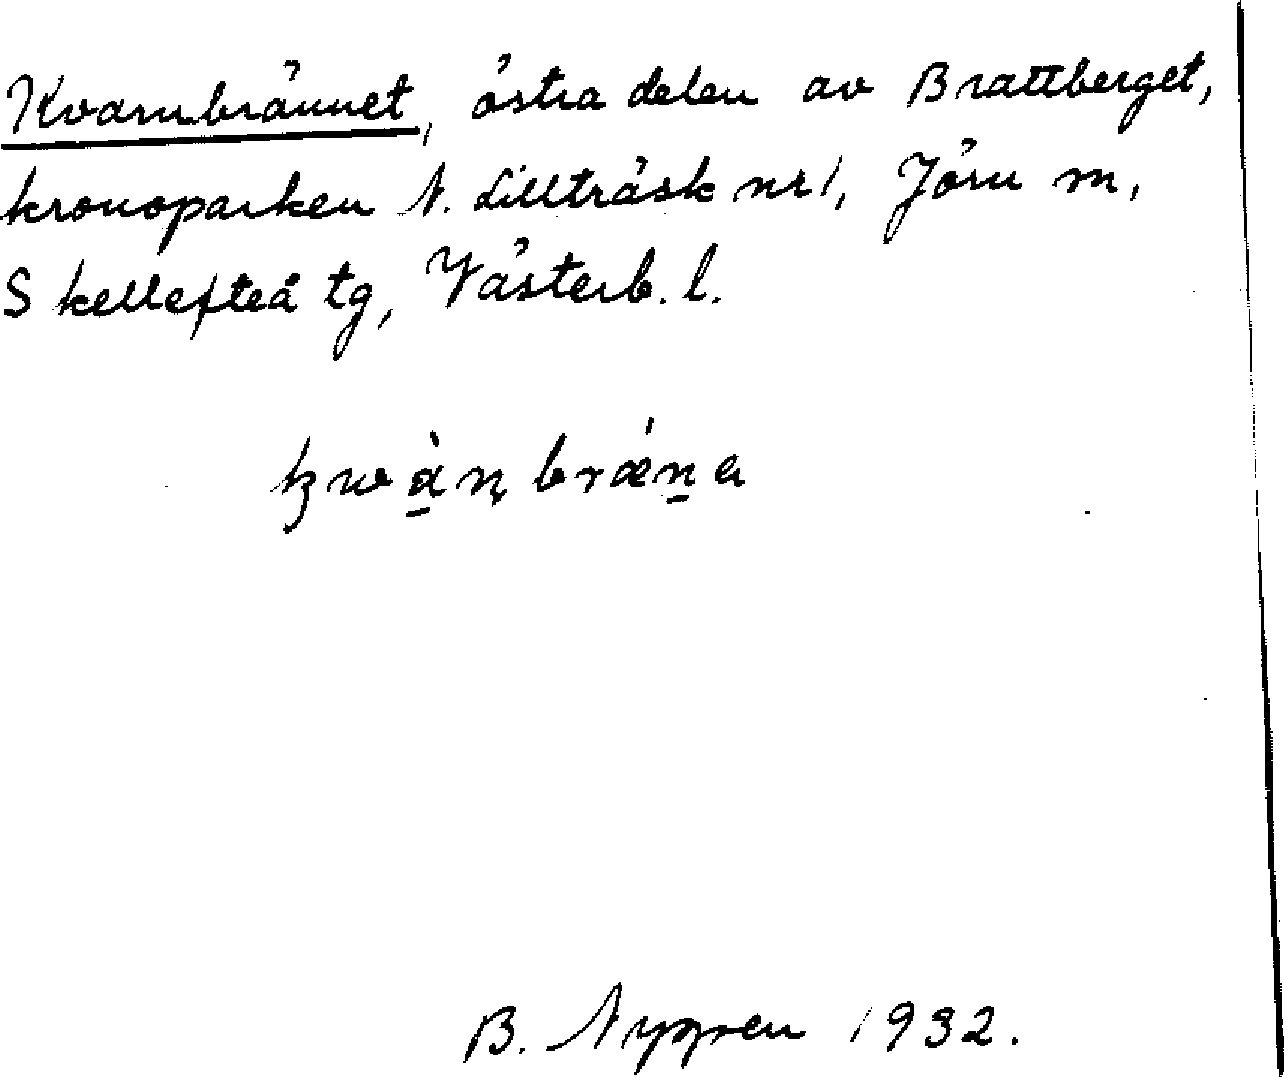 Kvarnbrännet, östra delen av Brattberget,
kronoparken N. Lillträsk nr 1, Jörn sn,
Skellefteå tg, Västerb. l.
B. Nygren 1932.